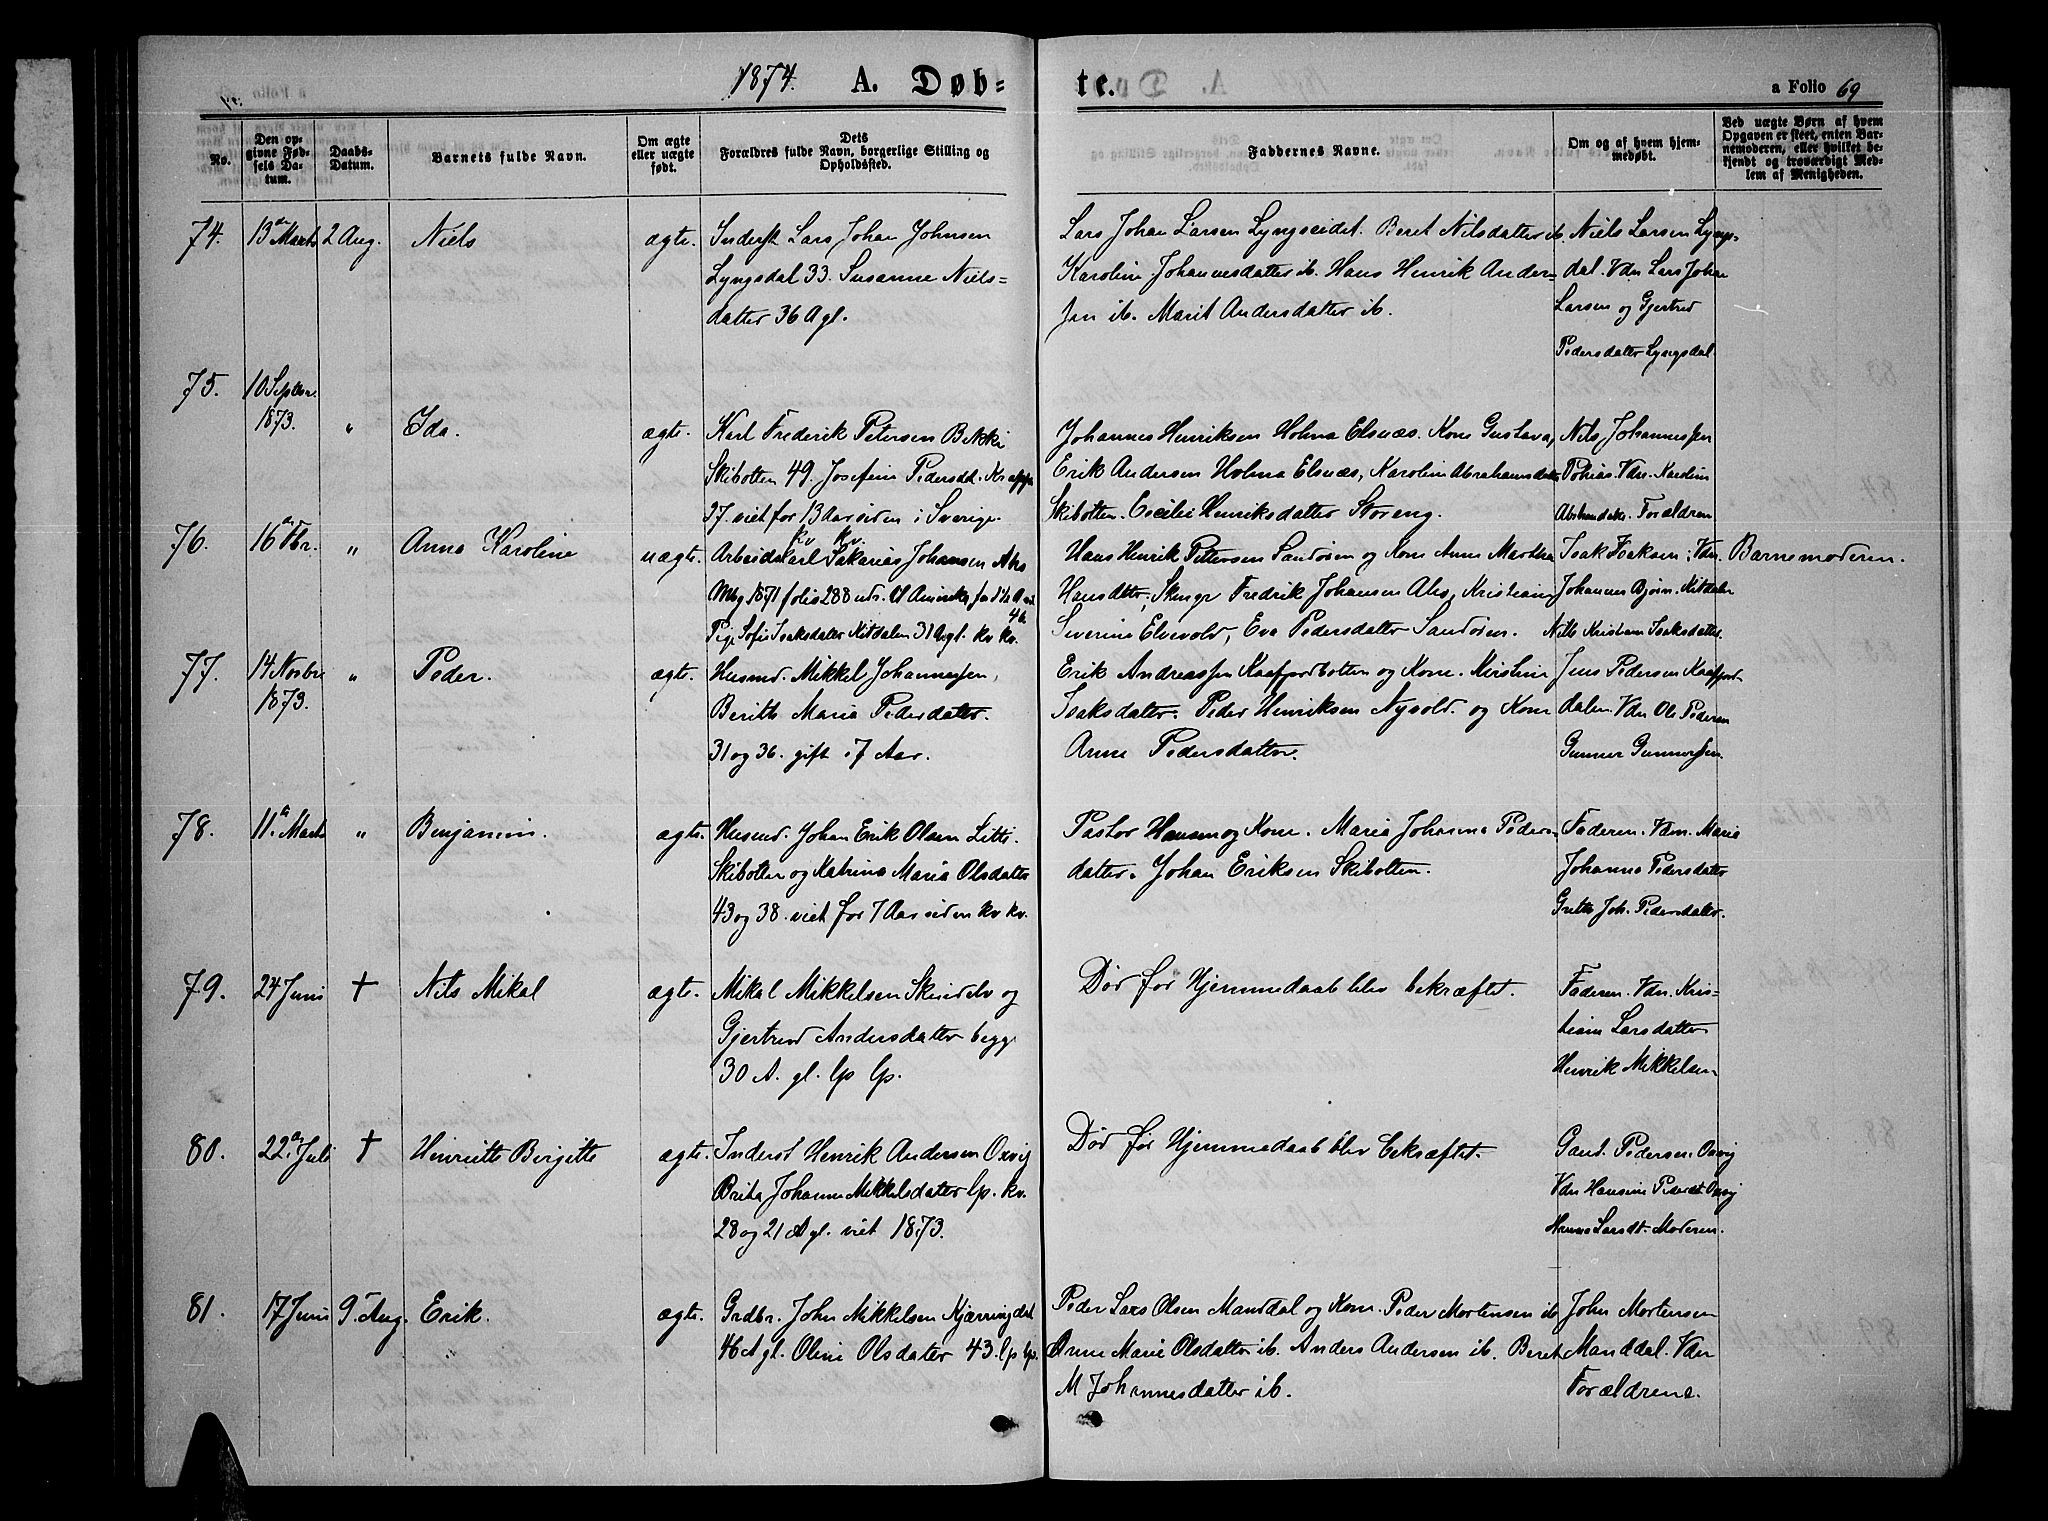 1874. A. Døb=
te.
a Folio 69
No.
Den op-
givne Fød-
sels Da-
tum.
Daabs-
Datum.
Barnets fulde Navn.
Om ægte
eller uægte
født.
Dets
Forældres fulde Navn, borgerlige Stilling og
Opholdssted.
Faddernes Navne.
Om og af hvem hjem-
medøbt.
Ved uægte Børn af hvem
Opgaven er skeet, enten Bar-
nemoderen, eller hvilket be-
kjendt og troværdigt Med-
lem af Menigheden.
74.
13de Marts
2 Aug.
Niels
ægte.
Inderst Lars Johan Johnsen
Lyngsdal 33. Susanne Niels=
datter 36 A gl.
Lars Johan Larsen Lyngseidet. Beret Nilsdatter ib.
Karoline Johannesdatter ib. Hans Henrik Ander=
sen ib. Marit Andersdatter ib.
Niels Larsen Lyngs=
dal. Vdn Lars Johan
Larsen og Gjertrud
Pedersdatter Lyngsdal.
75.
10 Septbr.
1873.
"
Ida.
ægte.
Karl Frederik Petersen Bekki
Skibotten 49. Josefine Pedersdt.
37. viet for 13 Aar siden i Sverige.
Johannes Henriksen Holma Elsnæs. Kone Gustava,
Erik Andersen Holma Elsnæs, Karoline Abrahamsdatter
Skibotten. Cecilie Henriksdatter Storeng.
Nils Johannessen
Tobias. Vdn. Karoline
Forældrene
76.
16de Fbr.
"
Anna Karoline
uægte.
kv kv.
Arbeidskarl Sakarias Johansen
1871 folio 288
Pige Sofie Isaksdatter Kitdalen 31 A gl. kv kv.
Hans Henrik Pettersen Sandøren og Kone Anne Martha
Hansdtter, Fredrik Johansen Kristiane
Severine Elvevold, Eva Pedersdatter Sandøren.
Isak Isaksen, Vdn.
Johannes Bjørn. Kitdalen
Nils Kristian Isaksdatter.
Barnemoderen.
77.
14 Novbr
1873.
"
Peder.
ægte.
Husmd. Mikkel Johannessen,
Berith Maria Pedersdatter.
31 og 36. gift i 7 Aar.
Erik Andreassen Kaafjordbotten og Kone. Kirstine
Isaksdatter. Peder Henriksen Nyvold. og Kone
Anne Pedersdatter.
Jens Pedersen Kaafjord
dalen Vdn Ole Pedersen
Gunner Gunnersen
78.
11te Marts
"
Benjamin.
ægte.
Husmd. Johan Erik Olsen Litti.
Skibotten og Katrina Maria Olsdatter
43 og 38. viet for 7 Aar siden kv kv.
Pastor Hansen og Kone. Maria Johanna Peders-
datter. Johan Eriksen Skibotten.
Faderen. Vdn. Maria
Johanna Pedersdatter
Grethe Joh. Pedersdatter.
79.
24 Juni
+
Nils Mikal
ægte.
Mikal Mikkelsen Skindelv og
Gjertrud Andersdatter begge
30 A. gl. lp lp.
Død før Hjemmedaab blev bekræftet.
Faderen. Vdn. Kris=
tiane Larsdatter
Henrik Mikkelsen
80.
22de Juli
+
Henriette Birgitte
ægte.
Inderst Henrik Andersen Oxvig
Brita Johanne Mikkelsdatter lp. kv.
28 og 21 A gl. viet 1873.
Død før Hjemmedaab blev bekræftet.
Pedersen. Oxvig
Vdn Hansine Pedersdt Oxvig
Larsdt. Moderen.
81.
17 Juni
9de Aug.
Erik.
ægte.
Grdbr. John Mikkelsen Kjærringdal
46 A gl. Oline Olsdatter 43. lp lp.
Peder Lars Olsen Manddal og Kone. Peder Mortensen ib
Anne Marie Olsdatter ib. Anders Andersen ib. Beret
M Johannesdatter ib.
John Mortensen
Manddal. Vdn
Forældrene.